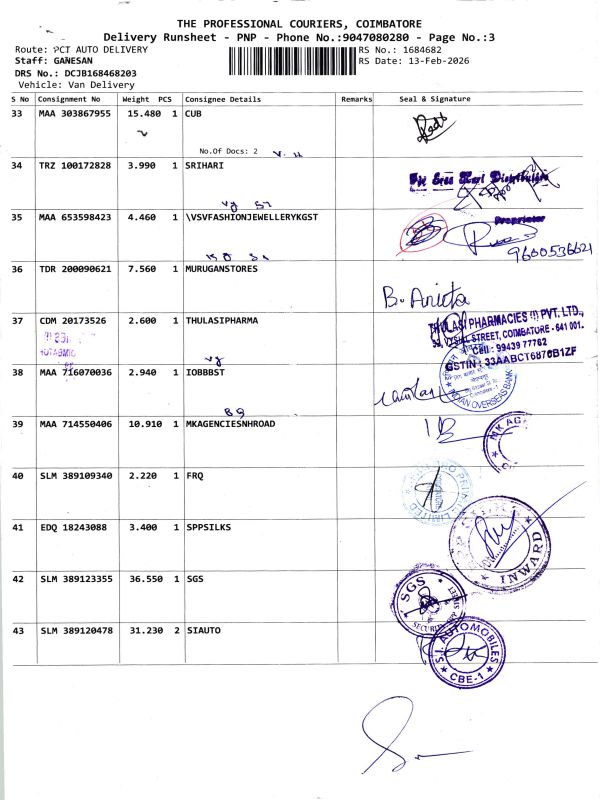 THE PROFESSIONAL COURIERS, COIMBATORE
Delivery Runsheet - PNP - Phone No.:9047080280 - Page No.:3
Route: PCT AUTO DELIVERY RS No.: 1684682
Staff: GANESAN RS Date: 13-Feb-2026
DRS No.: DCJB168468203
Vehicle: Van Delivery
S No Consignment No Weight PCS Consignee Details Remarks Seal & Signature
33 MAA 303867955 15.480 1 CUB
No.Of Docs: 2
34 TRZ 100172828 3.990 1 SRIHARI
35 MAA 653598423 4.460 1 \VSVFASHIONJEWELLERYKGST
Proprietor
9600536621
36 TDR 200090621 7.560 1 MURUGANSTORES
B. Anita
37 CDM 20173526 2.600 1 THULASIPHARMA
THULASI PHARMACIES (I) PVT. LTD.,
STREET, COIMBATORE - 641 001.
Cell : 99439 77762
GSTIN : 33AABCT6870B1ZF
38 MAA 716070036 2.940 1 IOBBBST
INDIAN OVERSEAS BANK
39 MAA 714550406 10.910 1 MKAGENCIESNHROAD
MK AG
40 SLM 389109340 2.220 1 FRQ
41 EDQ 18243088 3.400 1 SPPSILKS
INWARD
42 SLM 389123355 36.550 1 SGS
SGS
43 SLM 389120478 31.230 2 SIAUTO
S.I. AUTOMOBILES
CBE-1